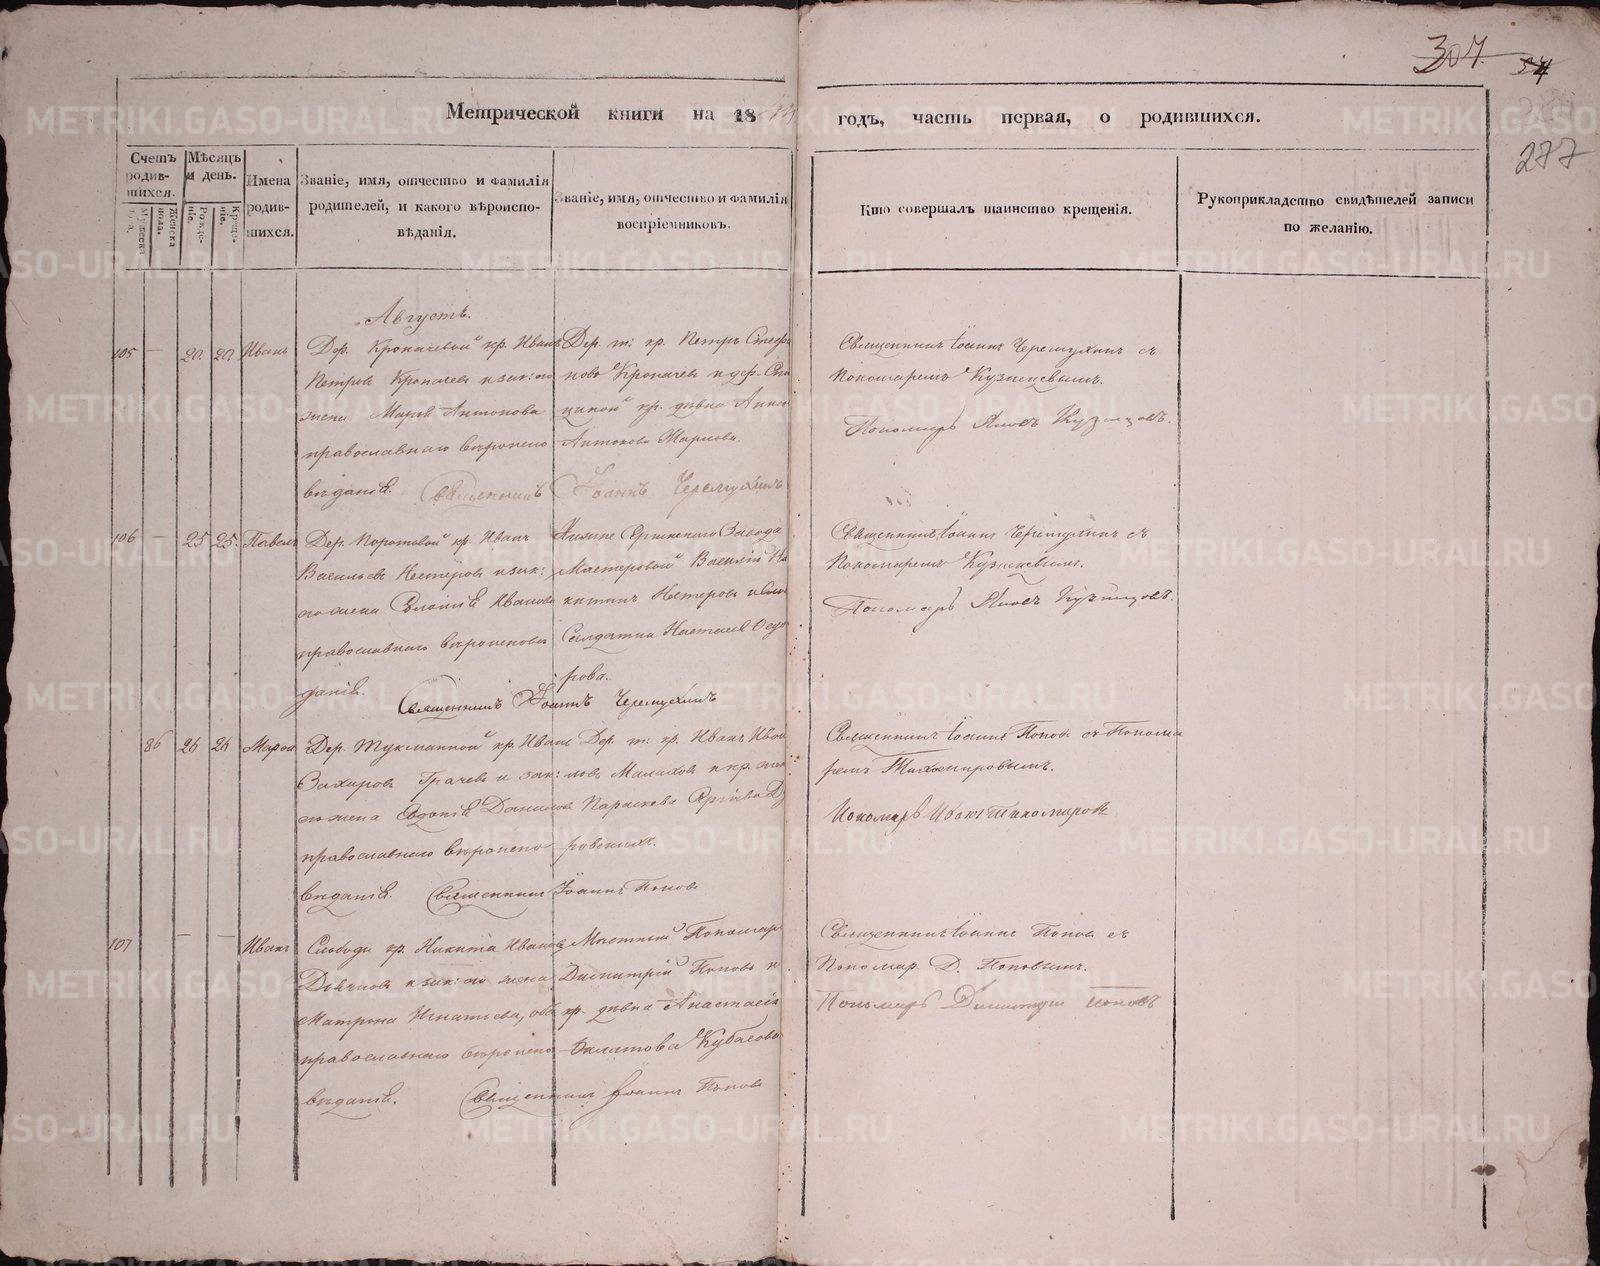 307. 34
277
Метрической книги на 18 годъ, часть первая, о родившихся.
Счетъ родившихся.
Мужеска пола.
Женска пола.
Мѣсяцъ и день.
Рожденіе.
Крещеніе.
Имена родившихся.
Званіе, имя, отчество и фамилія родителей, и какого вѣроисповѣданія.
Званіе, имя, отчество и фамилія воспріемниковъ.
Кто совершалъ таинство крещенія.
Рукоприкладство свидѣтелей записи по желанію.
Августъ.
105 — 20. 20. Иванъ
Дер. Кропачевой кр. Иванъ
Петровъ Кропачевъ и зак: его
жена Марья Антонова
православнаго вѣроиспо
вѣданія. Священникъ Іоаннъ Черемухинъ
Дер. т: кр. Петръ Стеф
новъ Кропачевъ и дер.
кр. дѣвка Анна
Антонова
Священникъ Іоаннъ Черемухинъ съ
Пономаремъ Кузнецовымъ.
Пономарь Яковъ Кузнецовъ.
106 — 25 25. Павелъ
Дер. Поротовой кр. Иванъ
Васильевъ Нестеровъ и зак:
его жена Иванова
православнаго вѣроисповѣ
данія.
Завода
Мастеровой Василій Ни
китинъ Нестеровъ и
Солдатка Настасья Федо
рова.
Священникъ Іоаннъ Черемухинъ
Священникъ Іоаннъ Черемухинъ съ
Пономаремъ Кузнецовымъ.
Пономарь Яковъ Кузнецовъ.
86 26 26 Марѳа
Дер. кр. Иванъ
Захаровъ Грачевъ и зак:
его жена Евдокія Данилова
православнаго вѣроиспо
вѣданія. Священникъ Іоаннъ Поповъ
Дер. т: кр. Иванъ Иван
новъ Малаховъ и кр. жен
Параскева
Священникъ Іоаннъ Поповъ съ Понома
ремъ Тихомировымъ.
Пономарь Иванъ Тихомировъ
107 — — Иванъ
Слободы кр. Никита Ивановъ
Дьячковъ и зак: его жена
Матрона Игнатьева, оба
православнаго вѣроиспо
вѣданія. Священникъ Іоаннъ Поповъ
Мѣстный Пономарь
Димитрій Поповъ и
кр. дѣвка Анастасія
Кубасова
Священникъ Іоаннъ Поповъ съ
Пономар. Д. Поповымъ.
Пономарь Димитрій Поповъ
METRIKI.GASO-URAL.RU